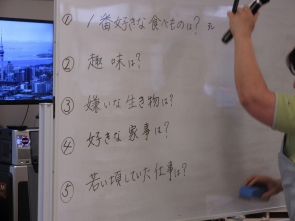 ① 1番好きな食べものは?
② 趣味は?
③ 嫌いな生き物は?
④ 好きな家事は?
⑤ 若い頃していた仕事は?